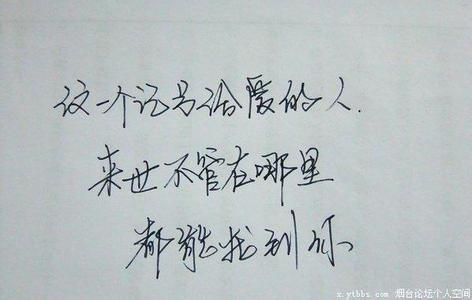 这一个记号给爱的人.
来世不管在哪里
都能找到你
x.ytbbs.com 烟台论坛个人空间